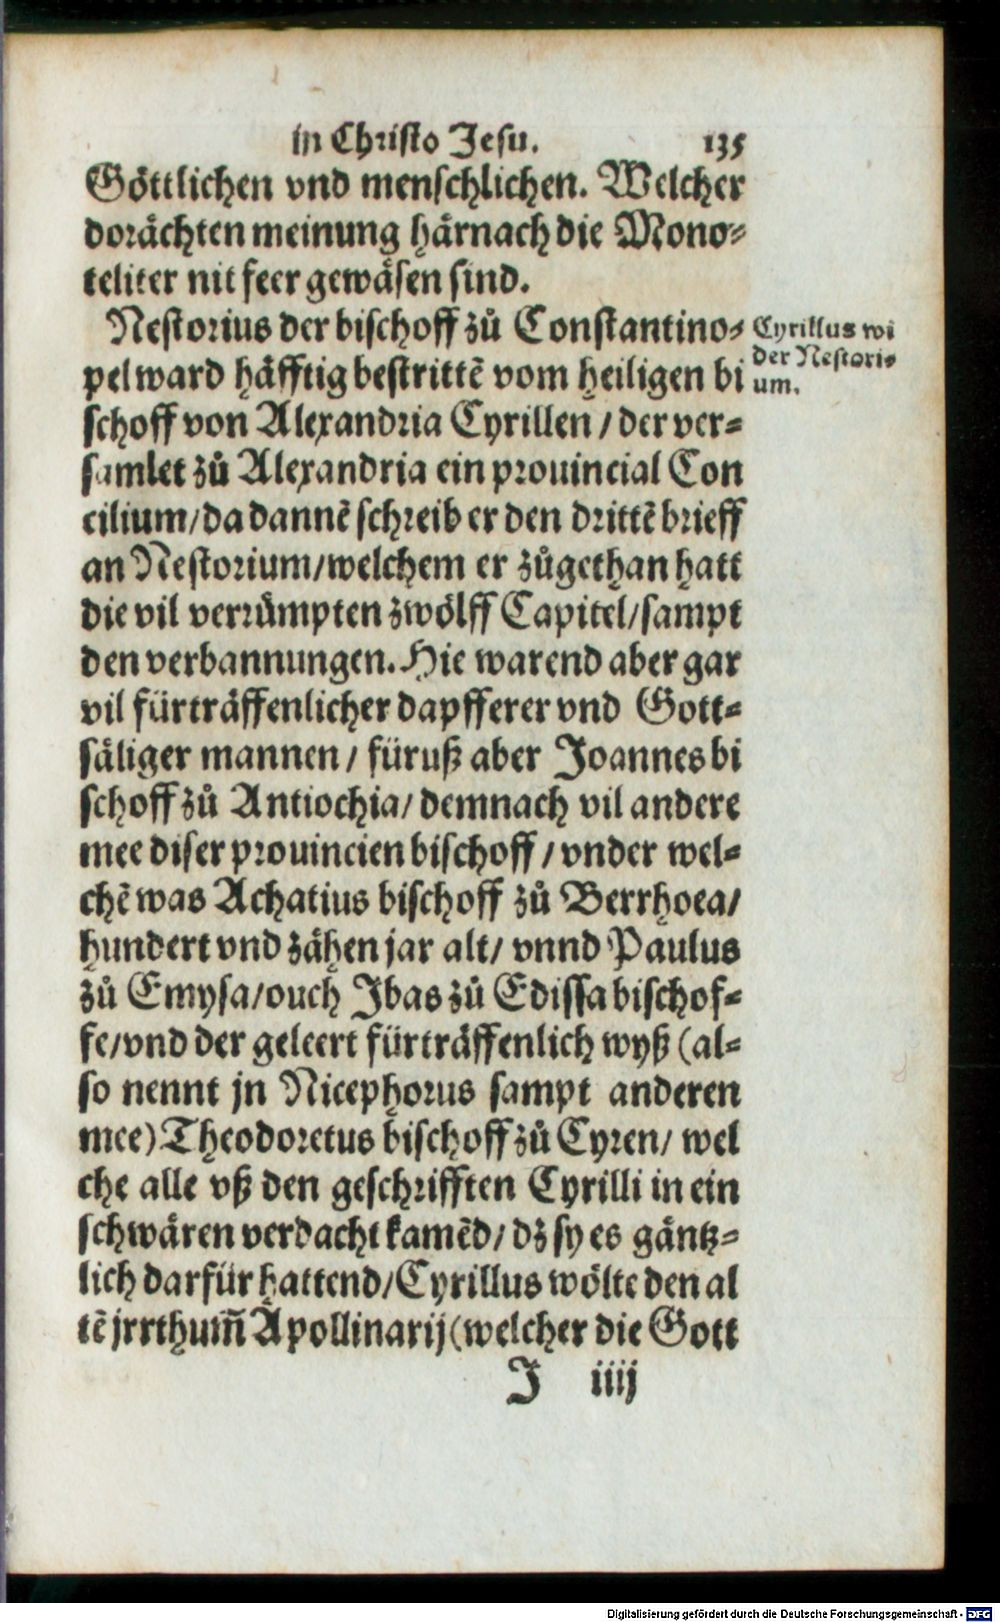 in Christo Jesu. 135
Göttlichen vnd menschlichen. Welcher
dorächten meinung härnach die Mono⸗
teliter nit feer gewäsen sind.
Nestorius der bischoff zů Constantino⸗
pel ward häfftig bestrittē vom heiligen bi
schoff von Alexandria Cyrillen / der ver⸗
samlet zů Alexandria ein prouincial Con
cilium/da dannē schreib er den drittē brieff
an Nestorium/welchem er zůgethan hatt
die vil verrůmpten zwölff Capitel/sampt
den verbannungen. Hie warend aber gar
vil fürträffenlicher dapfferer vnd Gott⸗
säliger mannen / füruß aber Joannes bi
schoff zů Antiochia/ demnach vil andere
mee diser prouincien bischoff / vnder wel⸗
chē was Achatius bischoff zů Berrhoea/
hundert vnd zähen jar alt/ vnnd Paulus
zů Emysa/ouch Jbas zů Edissa bischof⸗
fe/vnd der geleert fürträffenlich wyß (al⸗
so nennt jn Nicephorus sampt anderen
mee) Theodoretus bischoff zů Cyren/ wel
che alle vß den geschrifften Cyrilli in ein
schwären verdacht kamēd/ dz sy es gäntz⸗
lich darfür hattend/Cyrillus wölte den al
tē jrrthum̄ Apollinarij (welcher die Gott
J iiij
Cyrillus wi
der Nestori⸗
um.
Digitalisierung gefördert durch die Deutsche Forschungsgemeinschaft - DFG